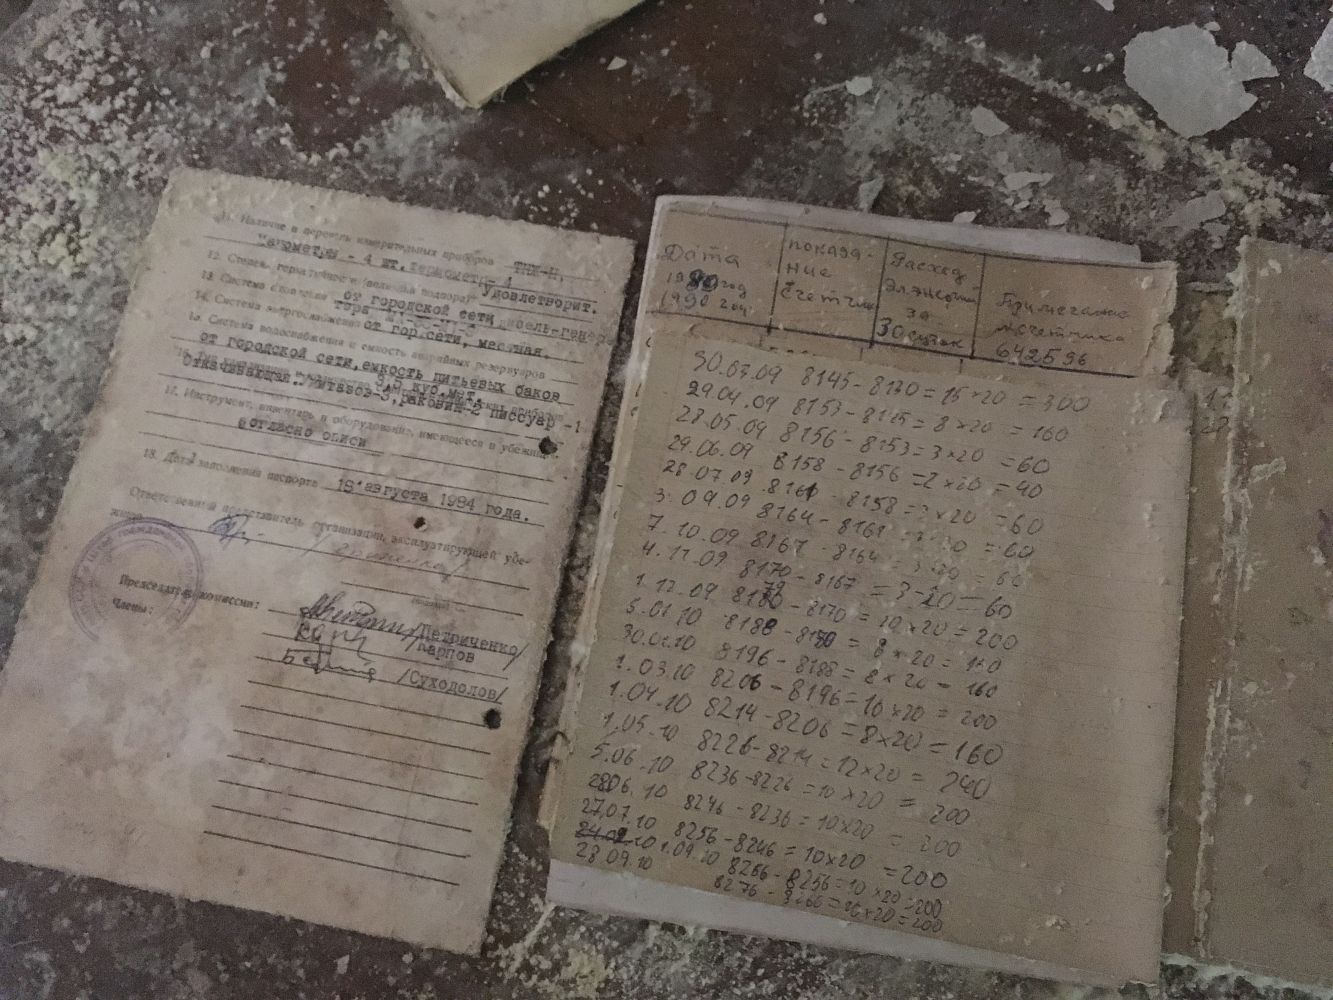 11. Наличие и перечень измерительных приборов ТНЖ-Н,
- 4 шт, термометр, 4
12. Степень герметичности (величина подпора)
удовлетворит.
13. Система отопления
от городской сети дизель-генер
14. Система энергоснабжения
от гор.сети, местная.
15. Система водоснабжения и емкость аварийных резервуаров
от городской сети, емкость питьевых баков
3,5 куб.мат.
Унитазов-3, раковин-2 писсуар -1
17. Инструмент, инвентарь и оборудование, имеющееся в убежище
согласно описи
18. Дата заполнения паспорта 18 августа 1994 года.
Ответственный представитель организации, эксплуатирующей убе-
жище
Председатель комиссии:
/Петриченко/
Члены:
Карпов
/Суходолов/
Дата
1990 год
показа-
ние
счетчик
Расход
эл энергии
за
30 суток
Примечание
№ счетчика
642596
30.07.09 8145 - 8130 = 15 × 20 = 300
29.04.09 8153 - 8145 = 8 × 20 = 160
28.05.09 8156 - 8153 = 3 × 20 = 60
29.06.09 8158 - 8156 = 2 × 20 = 40
28.07.09 8161 - 8158 = 3 × 20 = 60
3.09.09 8164 - 8161 = 60
7.10.09 8167 - 8164 = 3 × 20 = 60
4.11.09 8170 - 8167 = 3 × 20 = 60
1.12.09 8180 - 8170 = 10 × 20 = 200
5.01.10 8188 - 8180 = 8 × 20 = 160
30.01.10 8196 - 8188 = 8 × 20 = 160
1.03.10 8206 - 8196 = 10 × 20 = 200
1.04.10 8214 - 8206 = 8 × 20 = 160
1.05.10 8226 - 8214 = 12 × 20 = 240
5.06.10 8236 - 8226 = 10 × 20 = 200
28.06.10 8246 - 8236 = 10 × 20 = 200
27.07.10 8256 - 8246 = 10 × 20 = 200
1.09.10 8266 - 8256 = 10 × 20 = 200
28.09.10 8276 - 8266 = 10 × 20 = 200